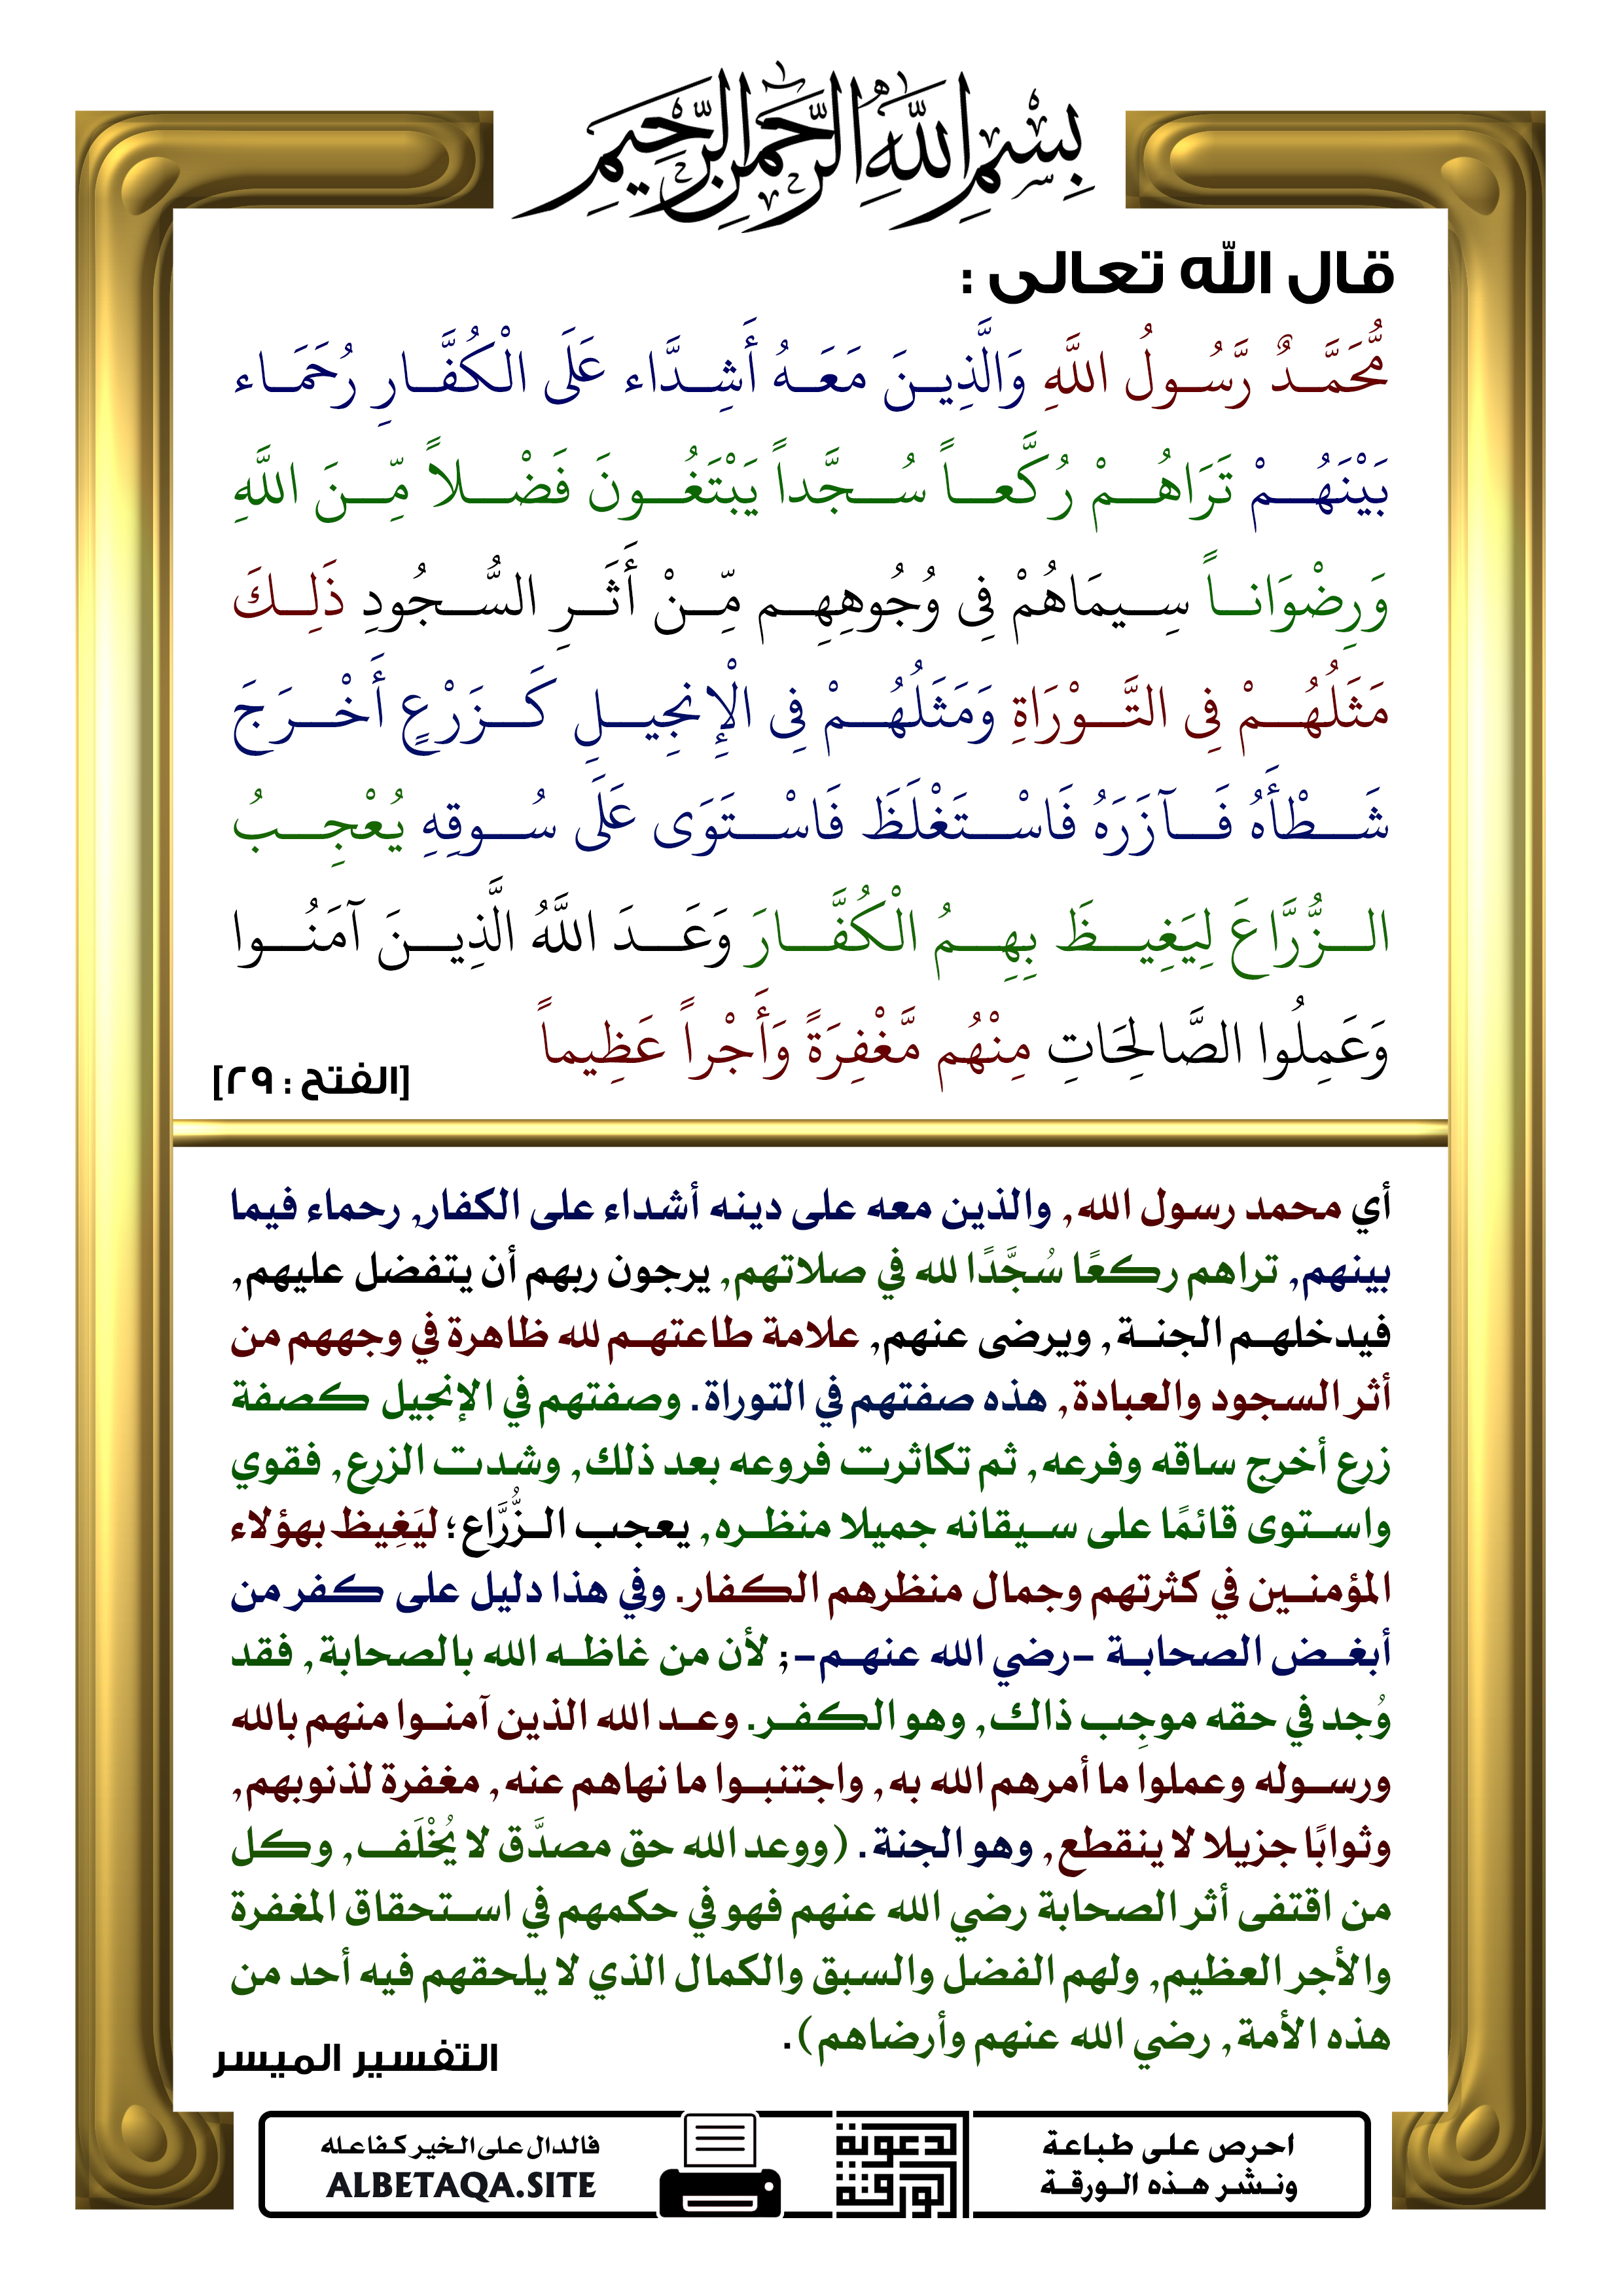 بِسْمِ اللَّهِ الرَّحْمَٰنِ الرَّحِيمِ
قال الله تعالى :
مُّحَمَّدٌ رَّسُولُ اللَّهِ وَالَّذِينَ مَعَهُ أَشِدَّاء عَلَى الْكُفَّارِ رُحَمَاء
بَيْنَهُمْ تَرَاهُمْ رُكَّعاً سُجَّداً يَبْتَغُونَ فَضْلاً مِّنَ اللَّهِ
وَرِضْوَاناً سِيمَاهُمْ فِي وُجُوهِهِم مِّنْ أَثَرِ السُّجُودِ ذَلِكَ
مَثَلُهُمْ فِي التَّوْرَاةِ وَمَثَلُهُمْ فِي الْإِنجِيلِ كَزَرْعٍ أَخْرَجَ
شَطْأَهُ فَآزَرَهُ فَاسْتَغْلَظَ فَاسْتَوَى عَلَى سُوقِهِ يُعْجِبُ
الزُّرَّاعَ لِيَغِيظَ بِهِمُ الْكُفَّارَ وَعَدَ اللَّهُ الَّذِينَ آمَنُوا
وَعَمِلُوا الصَّالِحَاتِ مِنْهُم مَّغْفِرَةً وَأَجْراً عَظِيماً
[الفتح : ٢٩]
أي محمد رسول الله, والذين معه على دينه أشداء على الكفار, رحماء فيما
بينهم, تراهم ركعًا سُجَّدًا لله في صلاتهم, يرجون ربهم أن يتفضل عليهم,
فيدخلهم الجنة, ويرضى عنهم, علامة طاعتهم لله ظاهرة في وجههم من
أثر السجود والعبادة, هذه صفتهم في التوراة. وصفتهم في الإنجيل كصفة
زرع أخرج ساقه وفرعه, ثم تكاثرت فروعه بعد ذلك, وشدت الزرع, فقوي
واستوى قائمًا على سيقانه جميلا منظره, يعجب الزُّرَّاع؛ ليَغِيظ بهؤلاء
المؤمنين في كثرتهم وجمال منظرهم الكفار. وفي هذا دليل على كفر من
أبغض الصحابة -رضي الله عنهم-; لأن من غاظه الله بالصحابة, فقد
وُجد في حقه موجِب ذاك, وهو الكفر. وعد الله الذين آمنوا منهم بالله
ورسوله وعملوا ما أمرهم الله به, واجتنبوا ما نهاهم عنه, مغفرة لذنوبهم,
وثوابًا جزيلا لا ينقطع, وهو الجنة. (ووعد الله حق مصدَّق لا يُخْلَف, وكل
من اقتفى أثر الصحابة رضي الله عنهم فهو في حكمهم في استحقاق المغفرة
والأجر العظيم, ولهم الفضل والسبق والكمال الذي لا يلحقهم فيه أحد من
هذه الأمة, رضي الله عنهم وأرضاهم).
التفسير الميسر
احرص على طباعة
ونشر هذه الورقة
الورقة
الدعوية
فالدال على الخير كفاعله
ALBETAQA.SITE